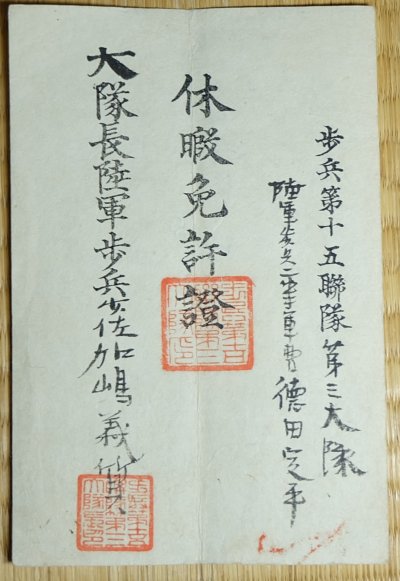 歩兵第十五聯隊第三大隊
陸軍歩兵二等軍曹德田定平
休暇免許證
大隊長陸軍歩兵少佐加嶋義質